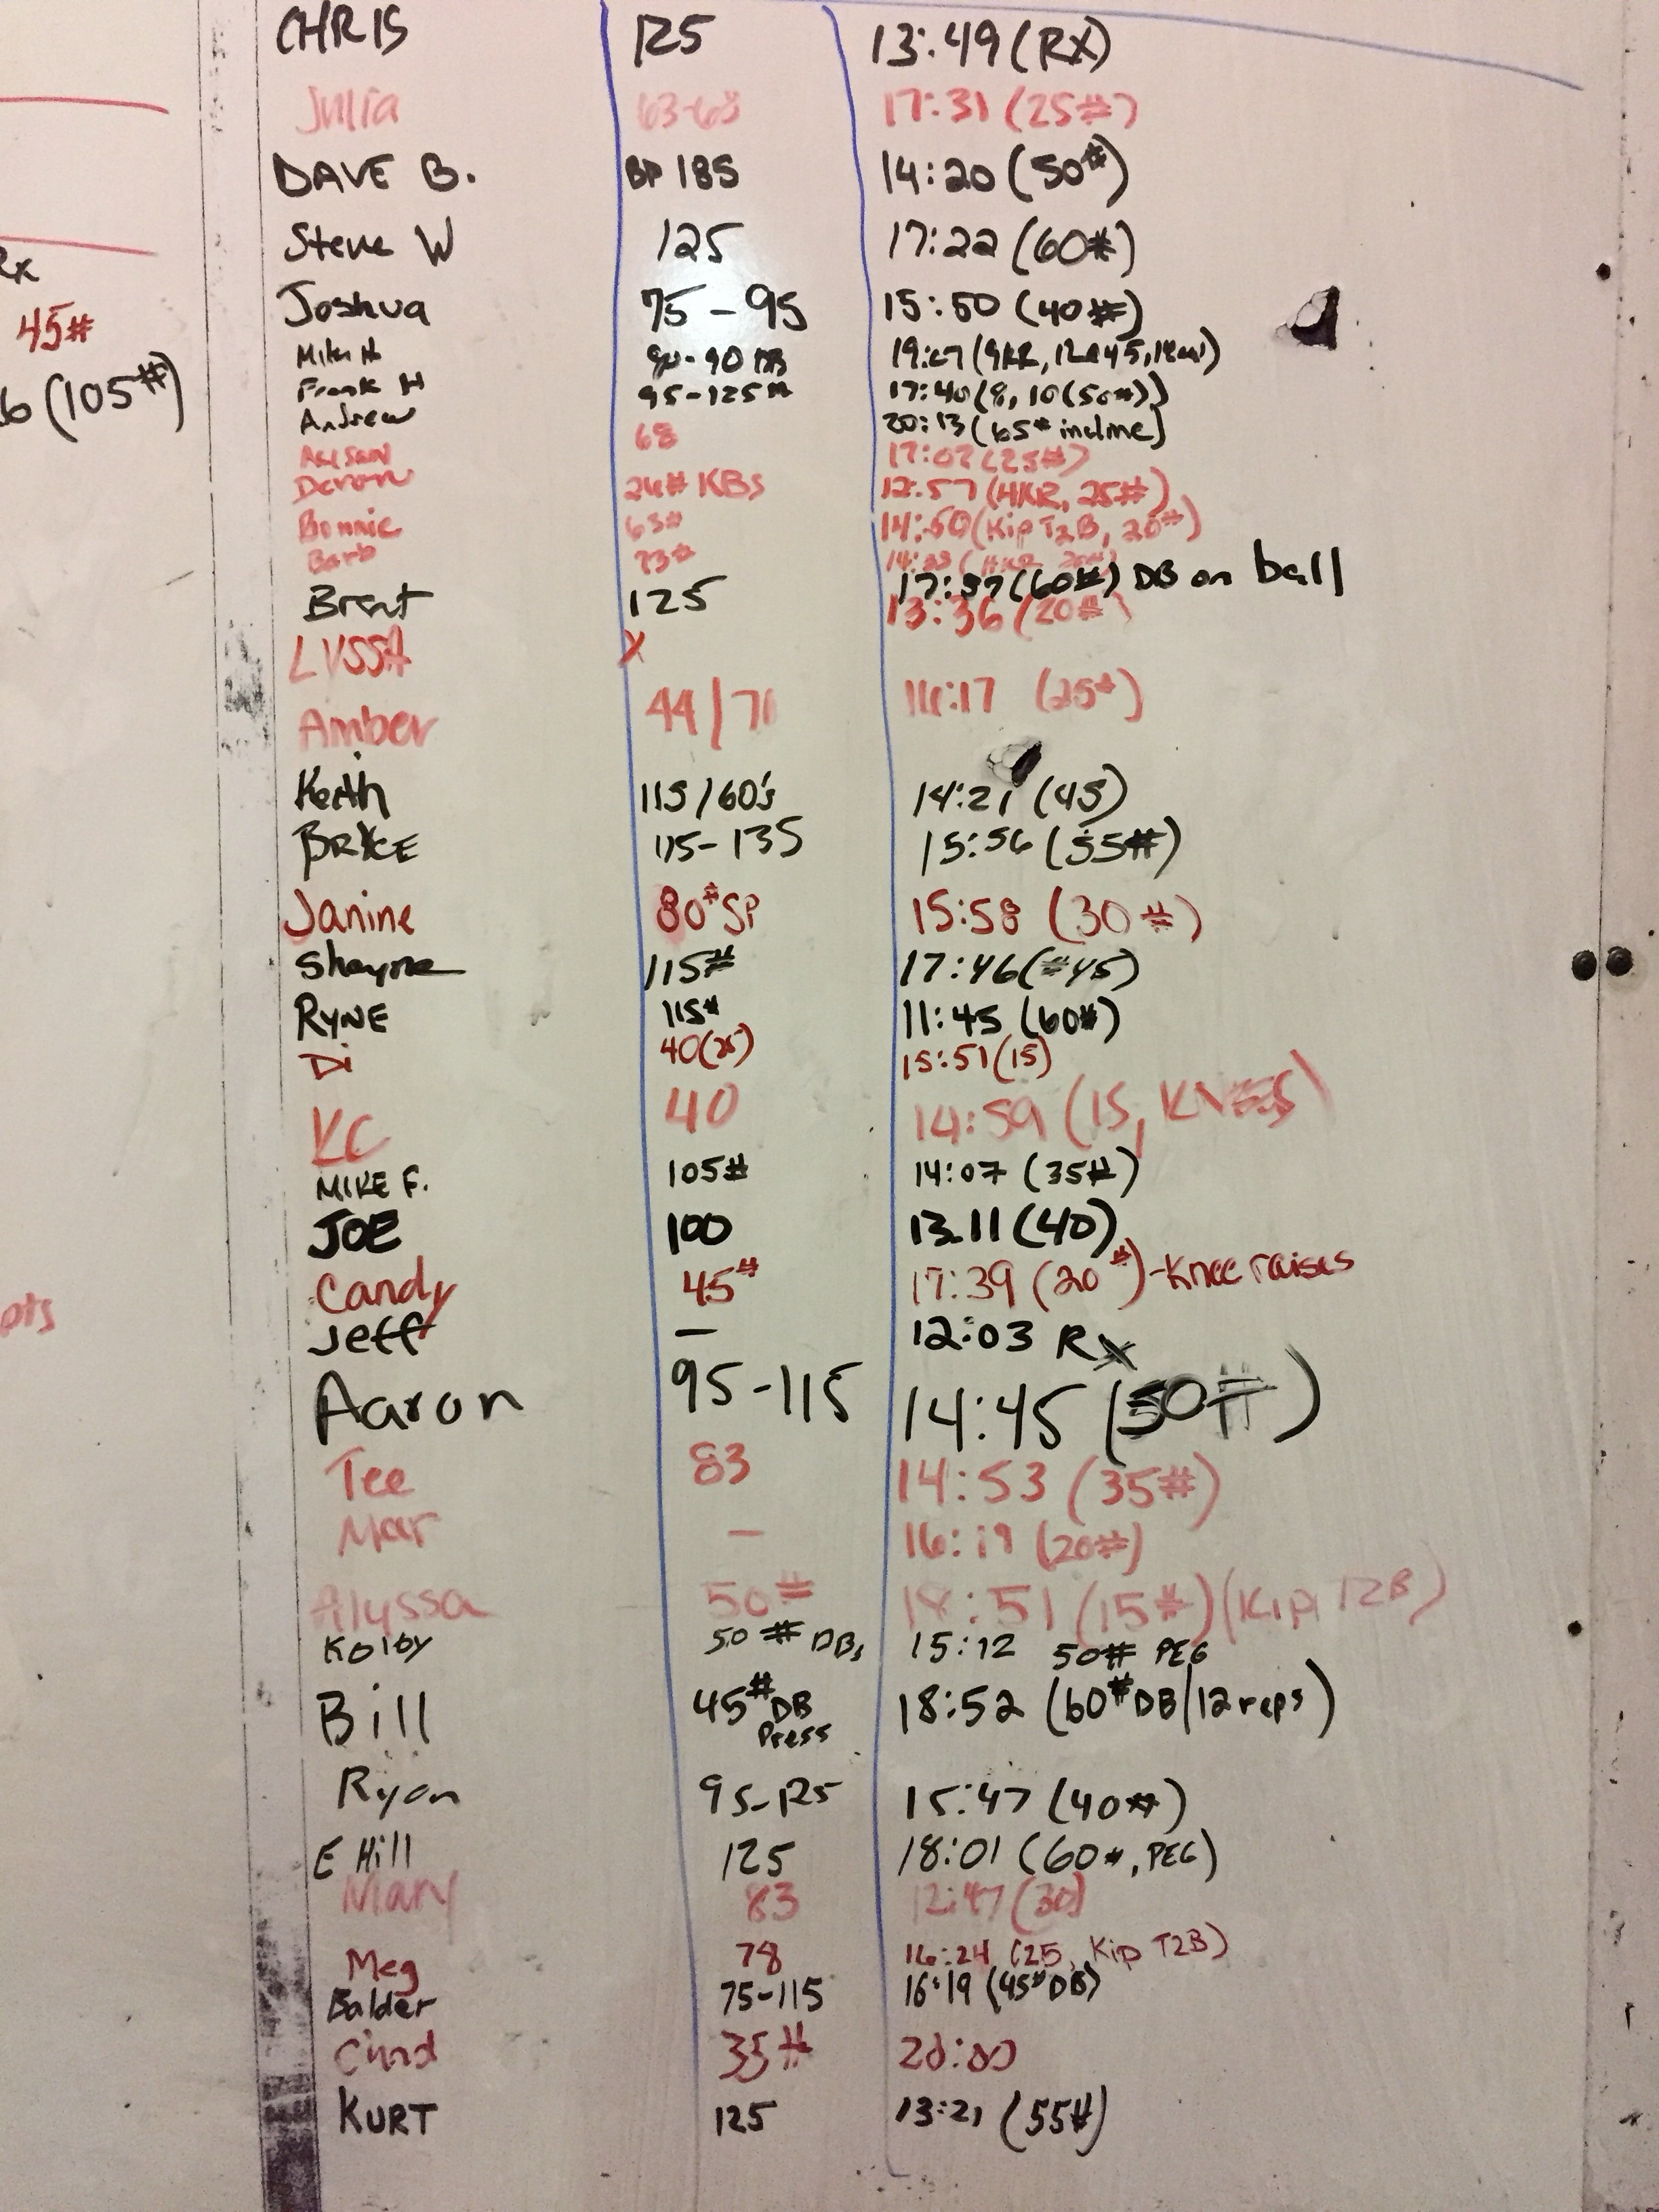 CHRIS 125 13:49 (RX)
Julia 63-68 17:31 (25#)
DAVE B. BP 185 14:20 (50#)
Rx Steve W 125 17:22 (60#)
45# Joshua 75-95 15:50 (40#)
Mike H 90 DB
(105#) Frank H 95-125# 17:40 (8, 10 (50#))
Andrew 20:13 (65# incline)
68 17:07 (25#)
Devon 26# KBs 12:57 (HKR, 25#)
Bonnie 63# 14:50 (Kip T2B, 20#)
Barb 73#
Brent 125 17:37 (60#) DB on ball
LYSSA X 13:36 (20#)
Amber 44/70 (25#)
Keith 115/60's 14:21 (45)
BRYCE 115-135 15:56 (55#)
Janine 80# SP 15:58 (30#)
Shayne 115# 17:46 (#45)
RYNE 115# 11:45 (60#)
Di 40(25) 15:51 (15)
KC 40 14:59 (15, KNEES)
MIKE F. 105# 14:07 (35#)
JOE 100 13.11 (40)
Candy 45# 17:39 (20#) -Knee raises
Jeff — 12:03 Rx
Aaron 95-115 14:45 (50#)
Tee 83 14:53 (35#)
Mar — 16:19 (20#)
Alyssa 50# (15#) (Kip T2B)
Kolby 50# DBs 15:12 50# PEG
Bill 45# DB Press 18:52 (60# DB/12 reps)
Ryan 95-125 15:47 (40#)
E Hill 125 18:01 (60#, PEG)
Mary 83 12:47 (30)
Meg 78 16:24 (25, Kip T2B)
Balder 75-115 16:19 (45# DB)
35#
KURT 125 13:21 (55#)